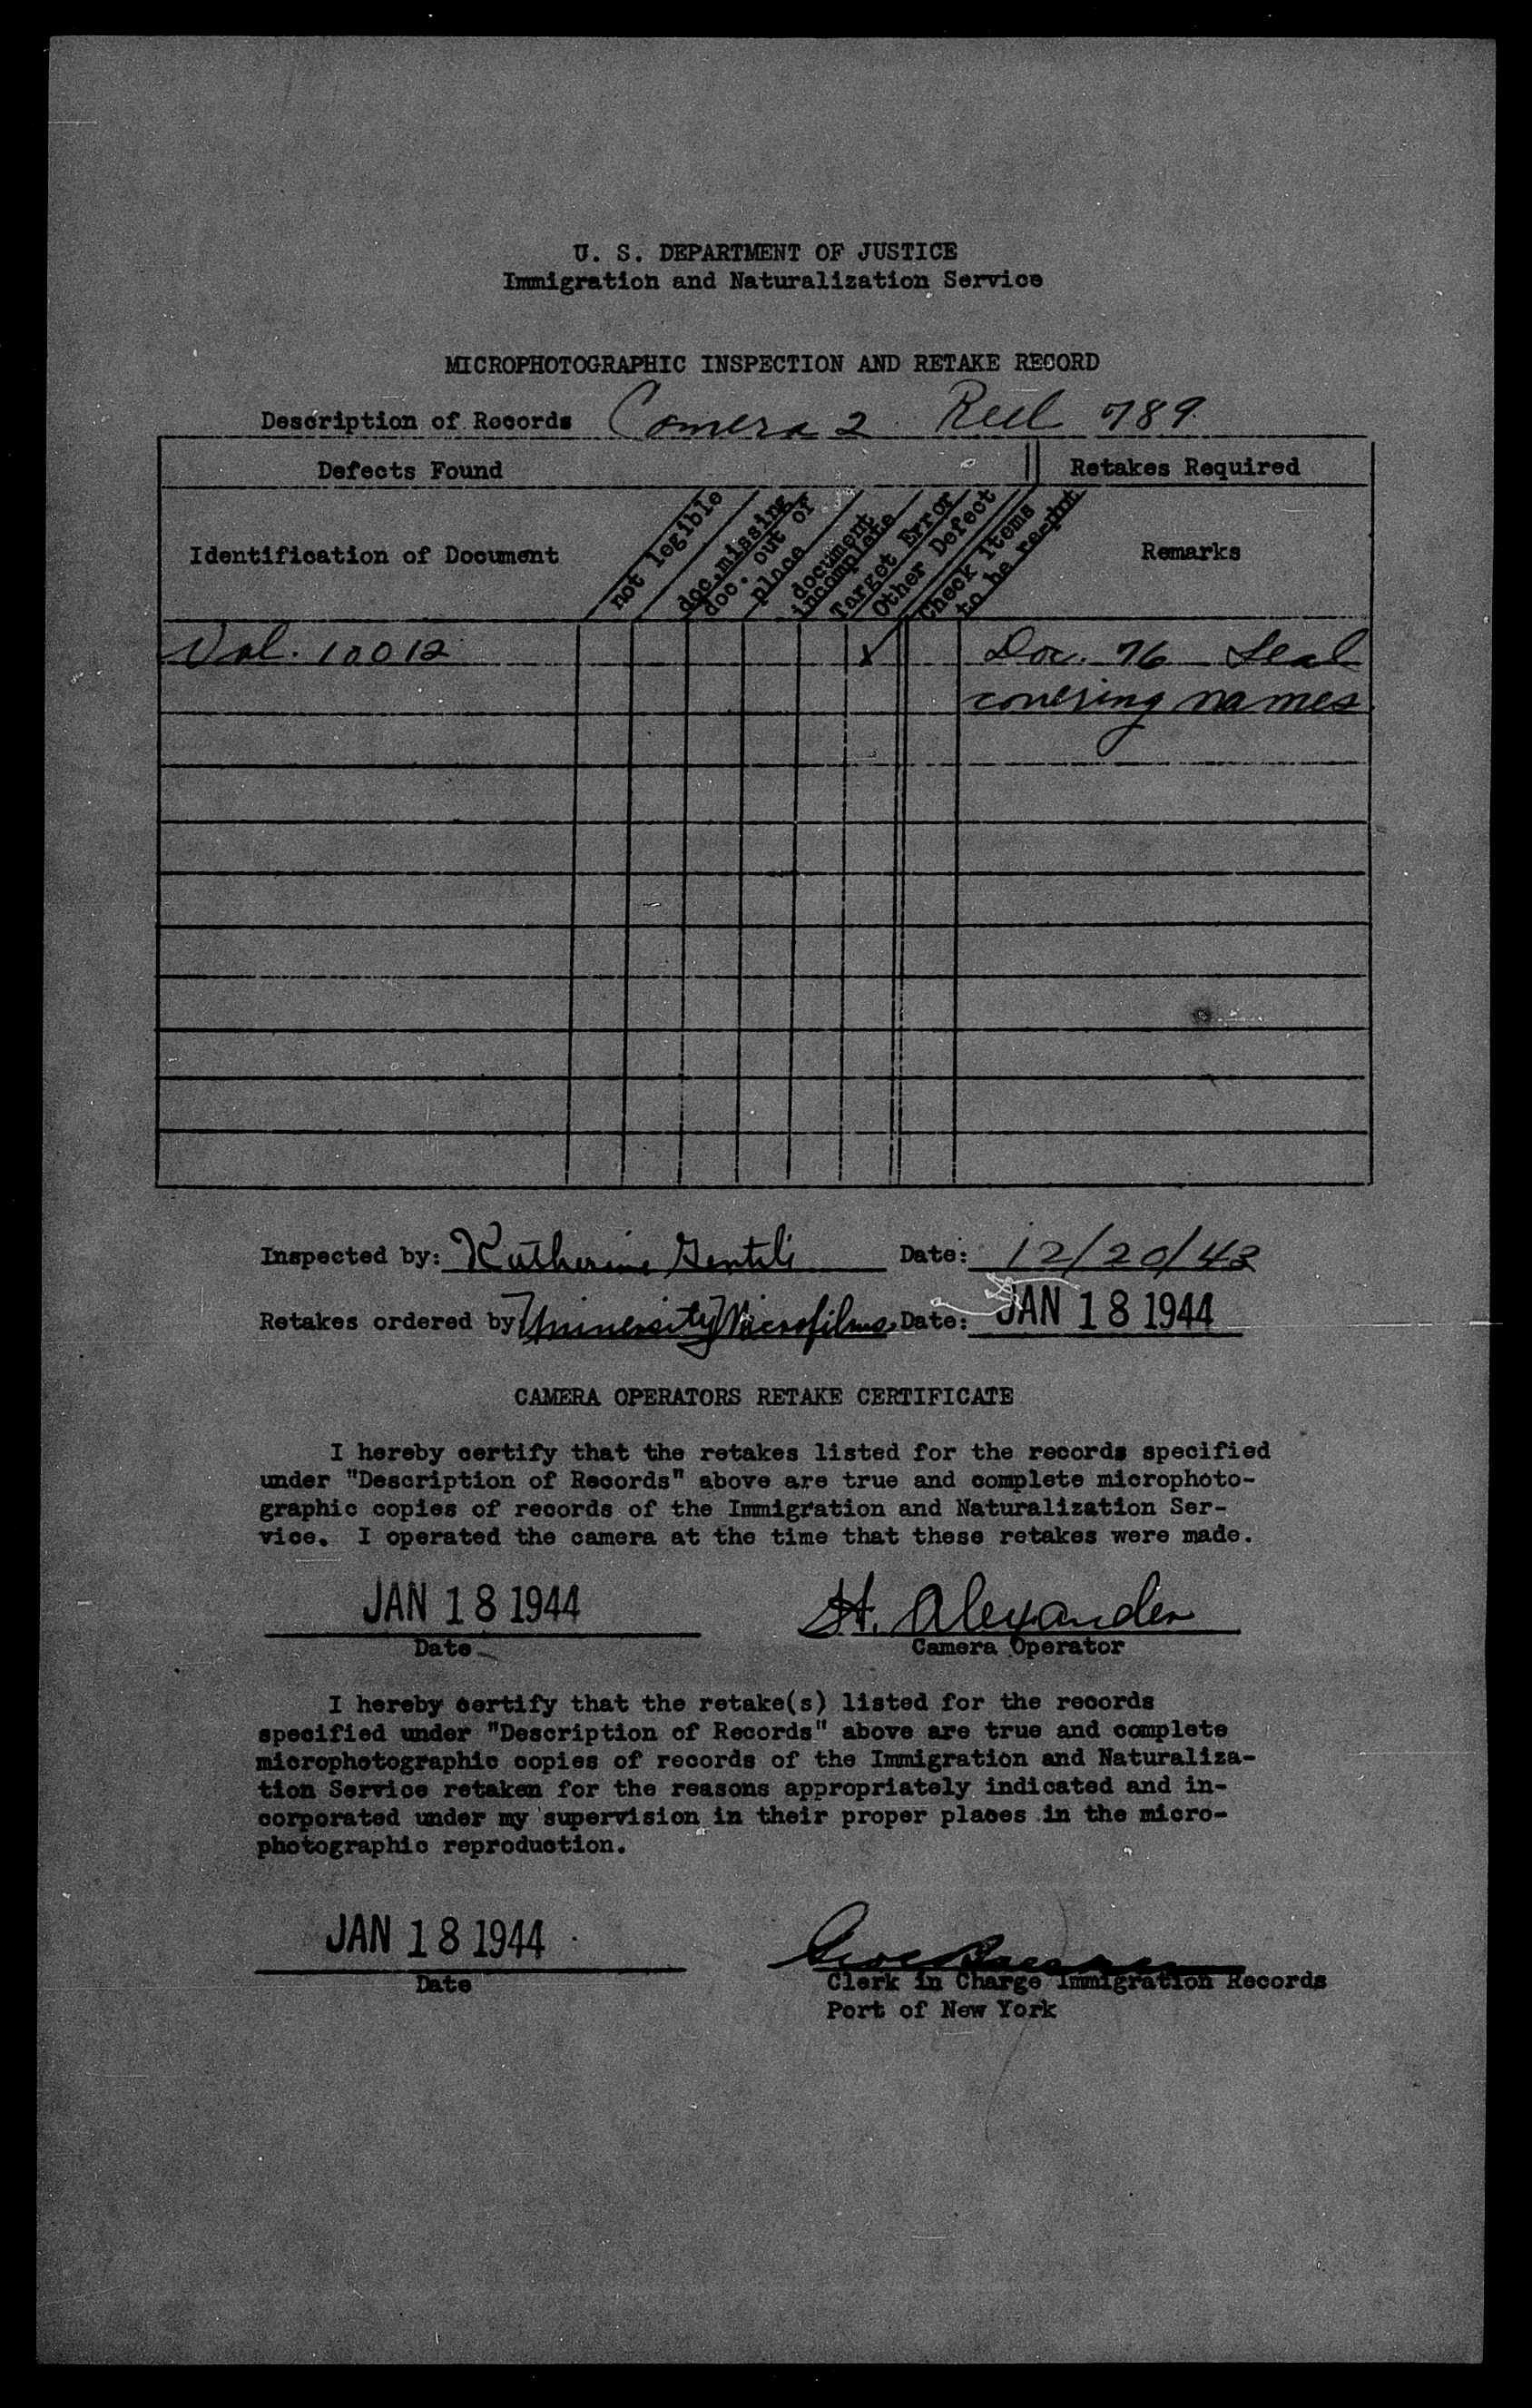 U. S. DEPARTMENT OF JUSTICE
Immigration and Naturalization Service
MICROPHOTOGRAPHIC INSPECTION AND RETAKE RECORD
Description of Records Camera 2 Reel 789
Defects Found Retakes Required
Identification of Document
not legible
doc. missing
doc. out of
place
document
incomplete
Target Error
Other Defect
Check items
to be re-phot
Remarks
Vol. 10012 x Doc. 76 Seal
covering names
Inspected by: Katherine Gentili Date: 12/20/43
Retakes ordered by University Microfilms Date: JAN 18 1944
CAMERA OPERATORS RETAKE CERTIFICATE
I hereby certify that the retakes listed for the records specified
under "Description of Records" above are true and complete microphoto-
graphic copies of records of the Immigration and Naturalization Ser-
vice. I operated the camera at the time that these retakes were made.
JAN 18 1944 H. Alexander
Date Camera Operator
I hereby certify that the retake(s) listed for the records
specified under "Description of Records" above are true and complete
microphotographic copies of records of the Immigration and Naturaliza-
tion Service retaken for the reasons appropriately indicated and in-
corporated under my supervision in their proper places in the micro-
photographic reproduction.
JAN 18 1944
Date Clerk in Charge Immigration Records
Port of New York